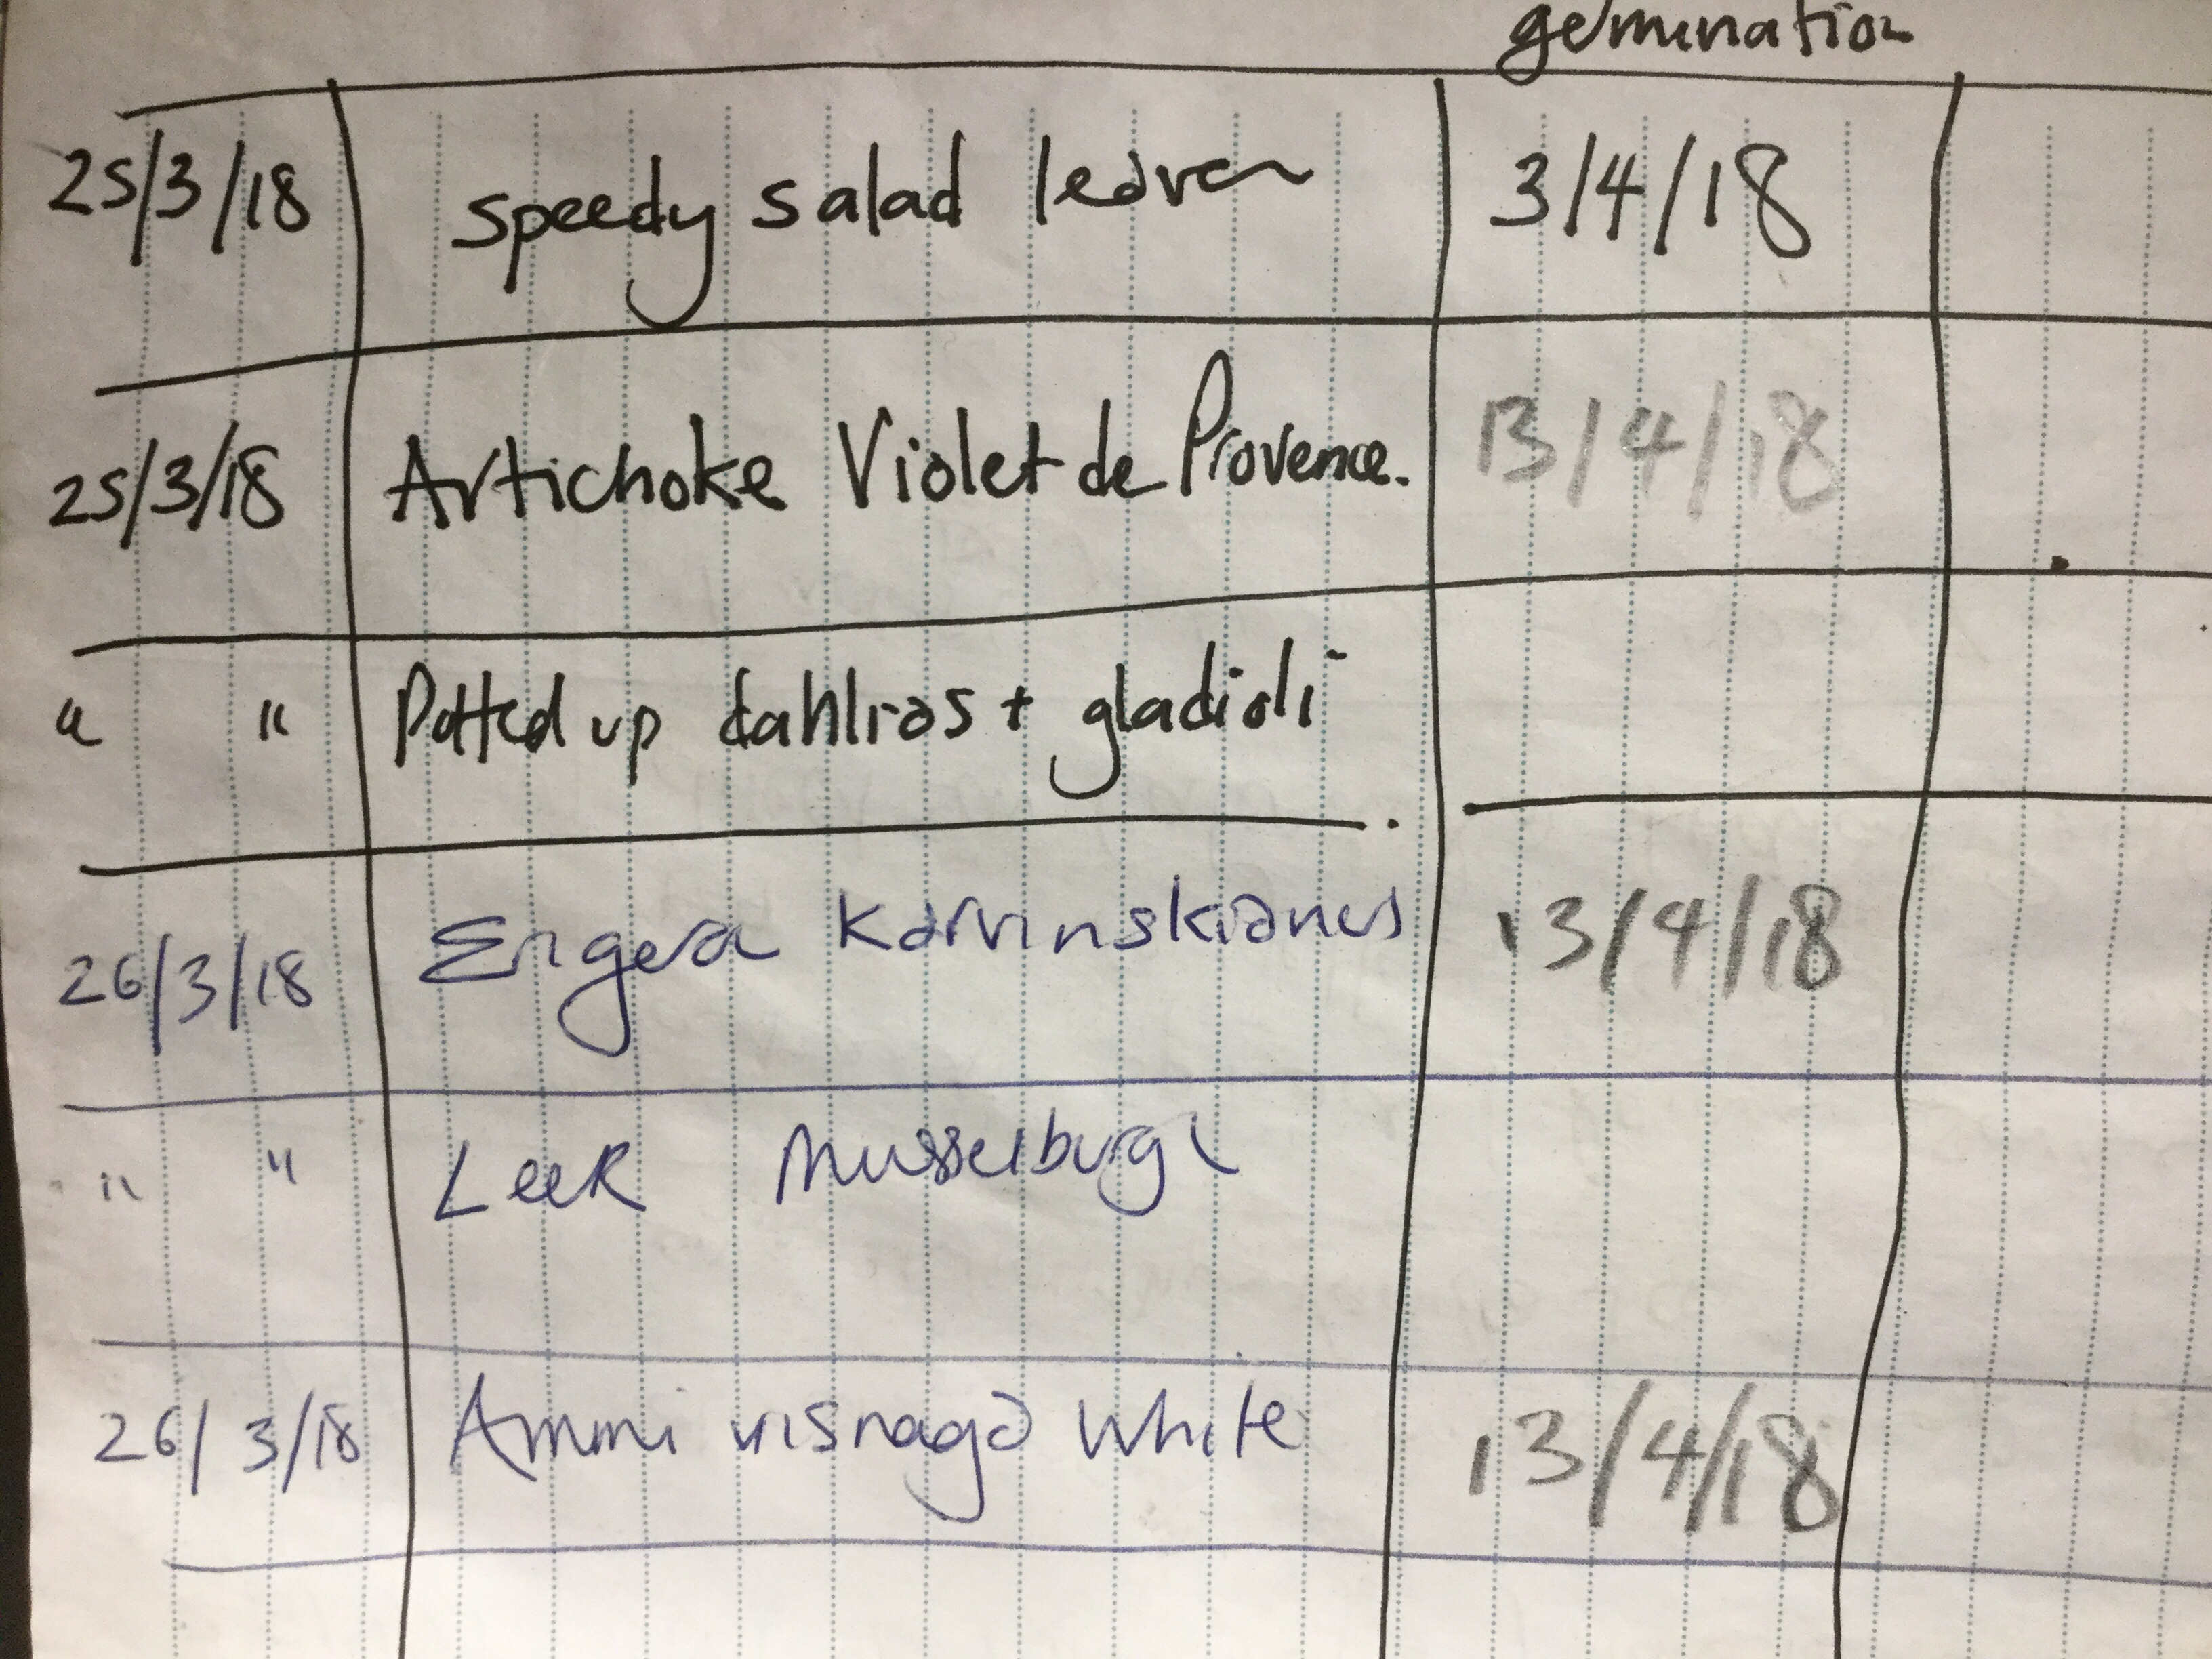 germination
25/3/18 speedy salad leaves 3/4/18
25/3/18 Artichoke Violet de Provence. 13/4/18
" " Potted up dahlias + gladioli
26/3/18 Erigera Karvinskianus 13/4/18
" " Leek Musselburgh
26/3/18 Ammi visnaga White 13/4/18